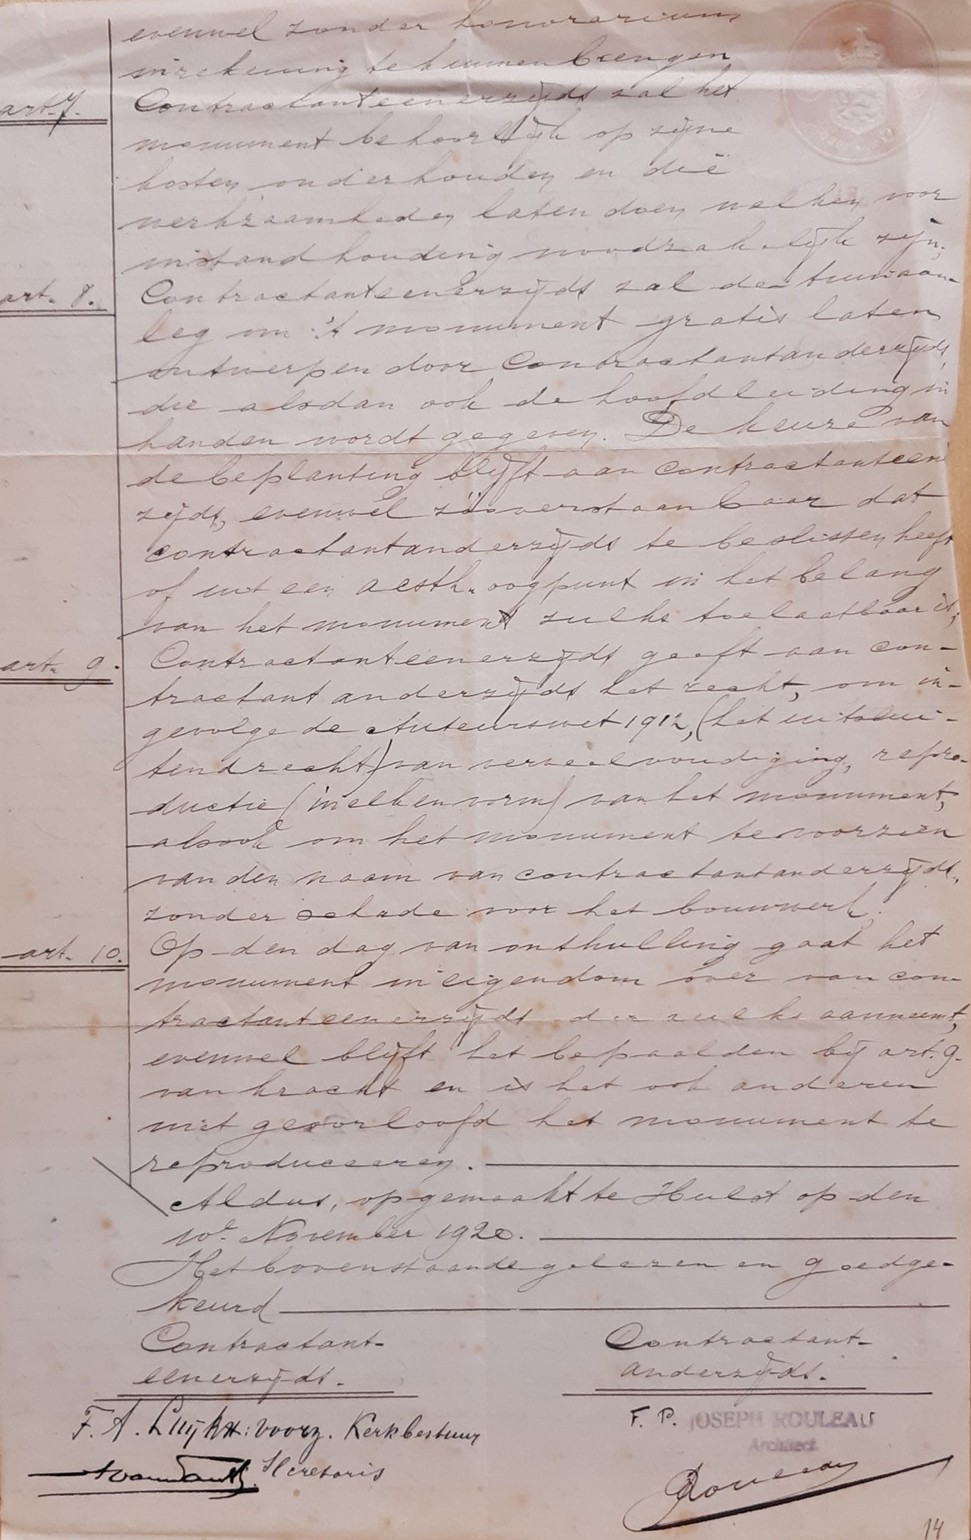 evenwel zonder honorarium
in rekening te kunnen brengen
art. 7. Contractant eenerzijds zal het
monument behoorlijk op zijne
kosten onderhouden en die
werkzaamheden laten doen welken voor
instandhouding noodzakelijk zijn,
art. 8. Contractant eenerzijds zal den tuinaan-
leg om 't monument gratis laten
ontwerpen door Contractant anderzijds,
die alsdan ook de hoofdleiding in
handen wordt gegeven. De keuze van
de beplanting blijft aan contractant een
zijds, evenwel zóó verstaanbaar dat
contractant anderzijds te beslissen heeft
of uit een aesth. oogpunt in het belang
van het monument zulks toelaatbaar is,
art. 9. Contractant eenerzijds geeft aan con-
tractant anderzijds het recht, om in-
gevolge de Auteurswet 1912, (het uitslui-
tendrecht) van verveelvoudiging, repro-
ductie (in elken vorm) van het monument,
alsook om het monument te voorzien
van den naam van contractant anderzijds,
zonder schade voor het bouwwerk.
art. 10. Op den dag van onthulling gaat het
monument in eigendom over van con-
tractant eenerzijds die zulks aanneemt,
evenwel blijft het bepaalden bij art. 9.
van kracht en is het ook anderen
niet geoorloofd het monument te
reproduceeren.
Aldus, opgemaakt te Hulst op den
10e November 1920.
Het bovenstaande gelezen en goedge-
keurd
Contractant- Contractant-
eenerzijds. anderzijds.
F. A. Luijkx: voorz. Kerkbestuur F. P. JOSEPH ROULEAU
Architect
Secretaris Rouleau
14